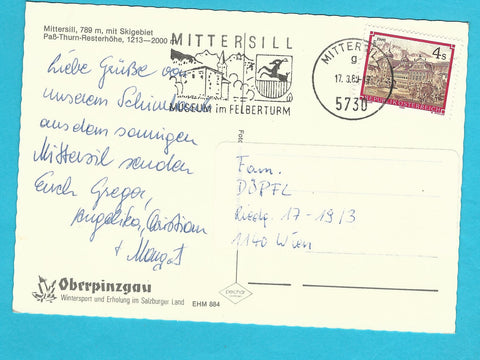 Mittersill, 789 m, mit Skigebiet
Paß-Thurn-Resterhöhe, 1213—2000 m
MITTERSILL
MUSEUM im FELBERTURM
MITTERSILL
g
17.3.89
5730
4 S
REPUBLIK ÖSTERREICH
Liebe Grüße von
unserem Schiurlaub
aus dem sonnigen
Mittersil senden
Euch Gregor,
Angelika, Christian
+ Margot
Fam.
DÖPFL
Riedg. 17-19/3
1140 Wien
Oberpinzgau
Wintersport und Erholung im Salzburger Land
EHM 884